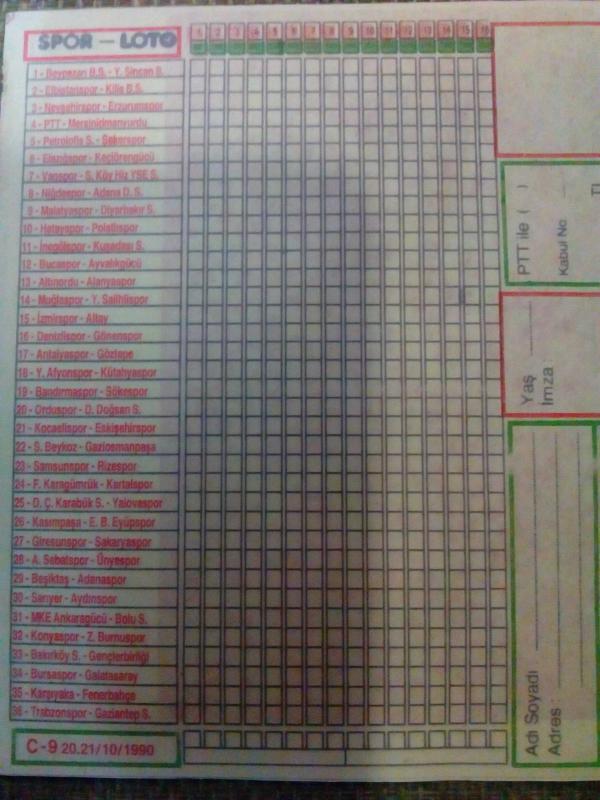 SPOR — LOTO
1 2 3 4 5 6 7 8 9 10 11 12 13 14 15 16
1 - Beypazarı B.S. - Y. Sincan S.
2 - Elbistanspor - Kilis B.S.
3 - Nevşehirspor - Erzurumspor
4 - PTT - Mersinidmanyurdu
5 - Petrolofis S. - Şekerspor
6 - Elazığspor - Keçiörengücü
7 - Vanspor - S. Köy Hiz YSE S.
8 - Niğdespor - Adana D. S.
9 - Malatyaspor - Diyarbakır S.
10 - Hatayspor - Polatlıspor
11 - İnegölspor - Kuşadası S.
12 - Bucaspor - Ayvalıkgücü
13 - Altınordu - Alanyaspor
14 - Muğlaspor - Y. Salihlispor
15 - İzmirspor - Altay
16 - Denizlispor - Gönenspor
17 - Antalyaspor - Göztepe
18 - Y. Afyonspor - Kütahyaspor
19 - Bandırmaspor - Sökespor
20 - Orduspor - D. Doğsan S.
21 - Kocaelispor - Eskişehirspor
22 - S. Beykoz - Gaziosmanpaşa
23 - Samsunspor - Rizespor
24 - F. Karagümrük - Kartalspor
25 - D. Ç. Karabük S. - Yalovaspor
26 - Kasımpaşa - E. B. Eyüpspor
27 - Giresunspor - Sakaryaspor
28 - A. Sebatspor - Ünyespor
29 - Beşiktaş - Adanaspor
30 - Sarıyer - Aydınspor
31 - MKE Ankaragücü - Bolu S.
32 - Konyaspor - Z. Burnuspor
33 - Bakırköy S. - Gençlerbirliği
34 - Bursaspor - Galatasaray
35 - Karşıyaka - Fenerbahçe
36 - Trabzonspor - Gaziantep S.
C-9 20.21/10/1990
PTT ile ( )
Kabul No
TL
Yaş
İmza
Adı Soyadı
Adres :